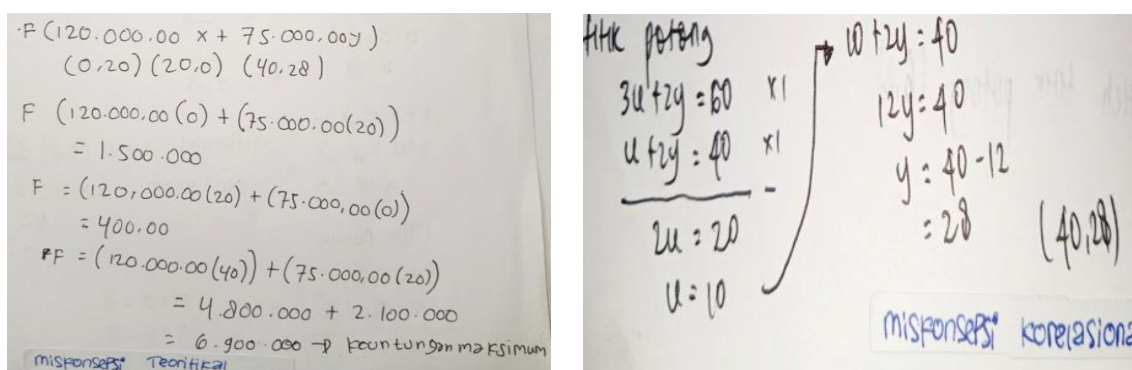 F (120.000,00 x + 75.000,00y)
(0,20) (20,0) (40,28)
F (120.000,00 (0) + (75.000.00(20))
= 1.500.000
F = (120,000.00 (20) + (75.000,00 (0))
= 400.00
F = (120.000.00 (40)) + (75.000,00 (20))
= 4.800.000 + 2.100.000
= 6.900.000 → keuntungan maksimum
miskonsepsi Teoritikal
titik potong
3u+2y = 60 x1
u+2y = 40 x1
-
2u = 20
u = 10
→ 10 + 2y = 40
12y = 40
y = 40 - 12
= 28
(40,28)
miskonsepsi korelasiona